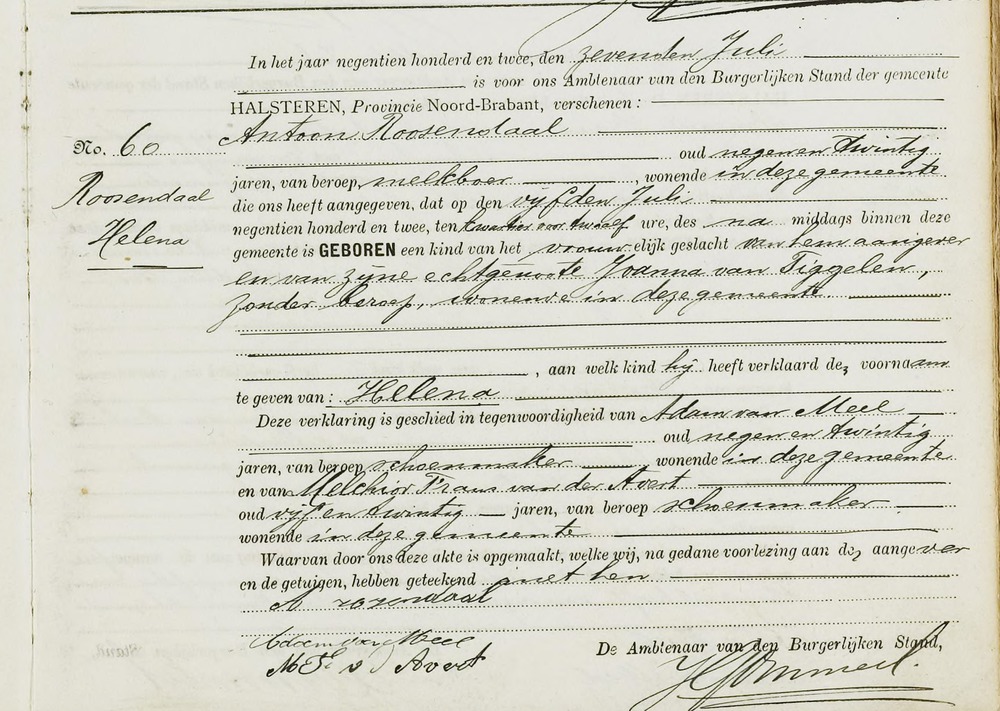 In het jaar negentien honderd en twee, den zevenden Juli
is voor ons Ambtenaar van den Burgerlijken Stand der gemeente
HALSTEREN, Provincie Noord-Brabant, verschenen:
Antoon Roosendaal
No. 60
oud negen en twintig
Roosendaal
Helena
jaren, van beroep melkboer, wonende in deze gemeente
die ons heeft aangegeven, dat op den vijfden Juli
negentien honderd en twee, ten kwartier voor twaalf ure, des na middags binnen deze
gemeente is GEBOREN een kind van het vrouwelijk geslacht van hem aangever
en van zijne echtgenoote Joanna van Tiggelen,
zonder beroep, wonende in deze gemeente
, aan welk kind hij heeft verklaard de voornaam
te geven van: Helena
Deze verklaring is geschied in tegenwoordigheid van Adam van Meel
oud negen en twintig
jaren, van beroep schoenmaker, wonende in deze gemeente
en van Melchior Frans van der Avert
oud vijf en twintig jaren, van beroep schoenmaker
wonende in deze gemeente
Waarvan door ons deze akte is opgemaakt, welke wij, na gedane voorlezing aan de aangever
en de getuigen, hebben geteekend met hen
A rozendaal
Adam van Meel
M F v d Avert
De Ambtenaar van den Burgerlijken Stand,